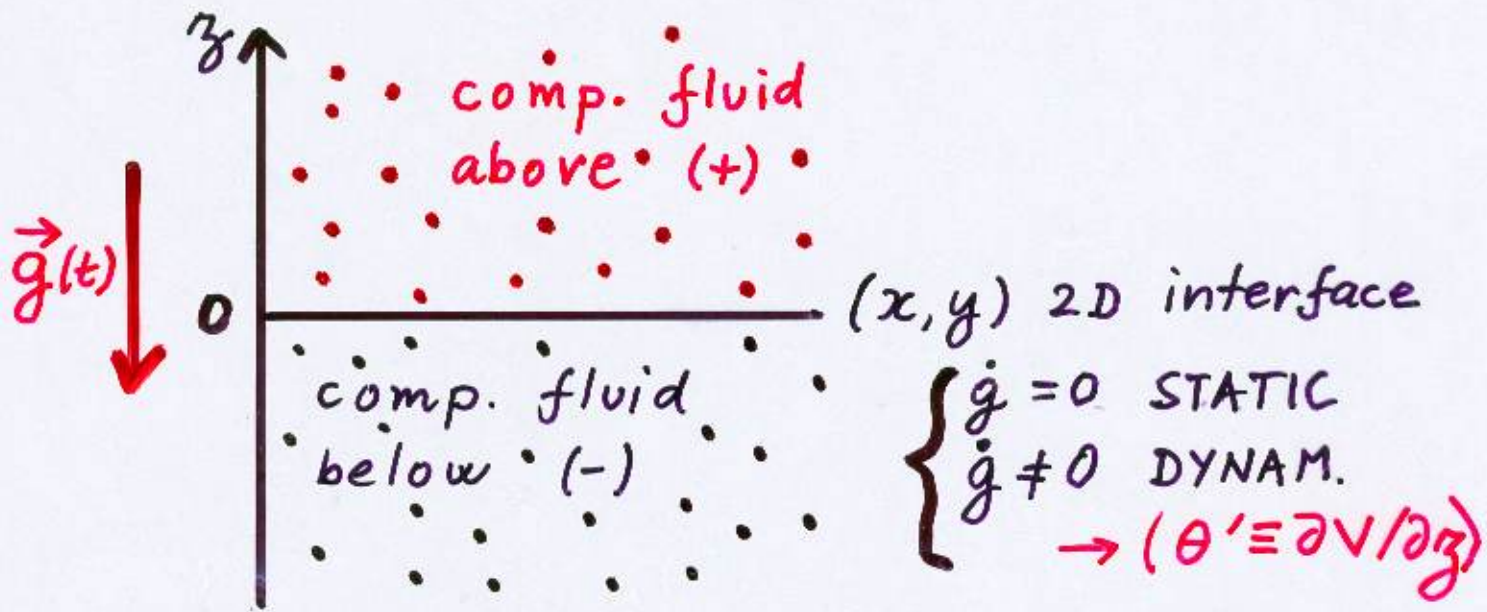 z
comp. fluid
above (+)
g⃗(t)
0
(x, y) 2D interface
comp. fluid
below (-)
{ ġ = 0 STATIC
ġ ≠ 0 DYNAM.
→ (θ' ≡ ∂V/∂z)